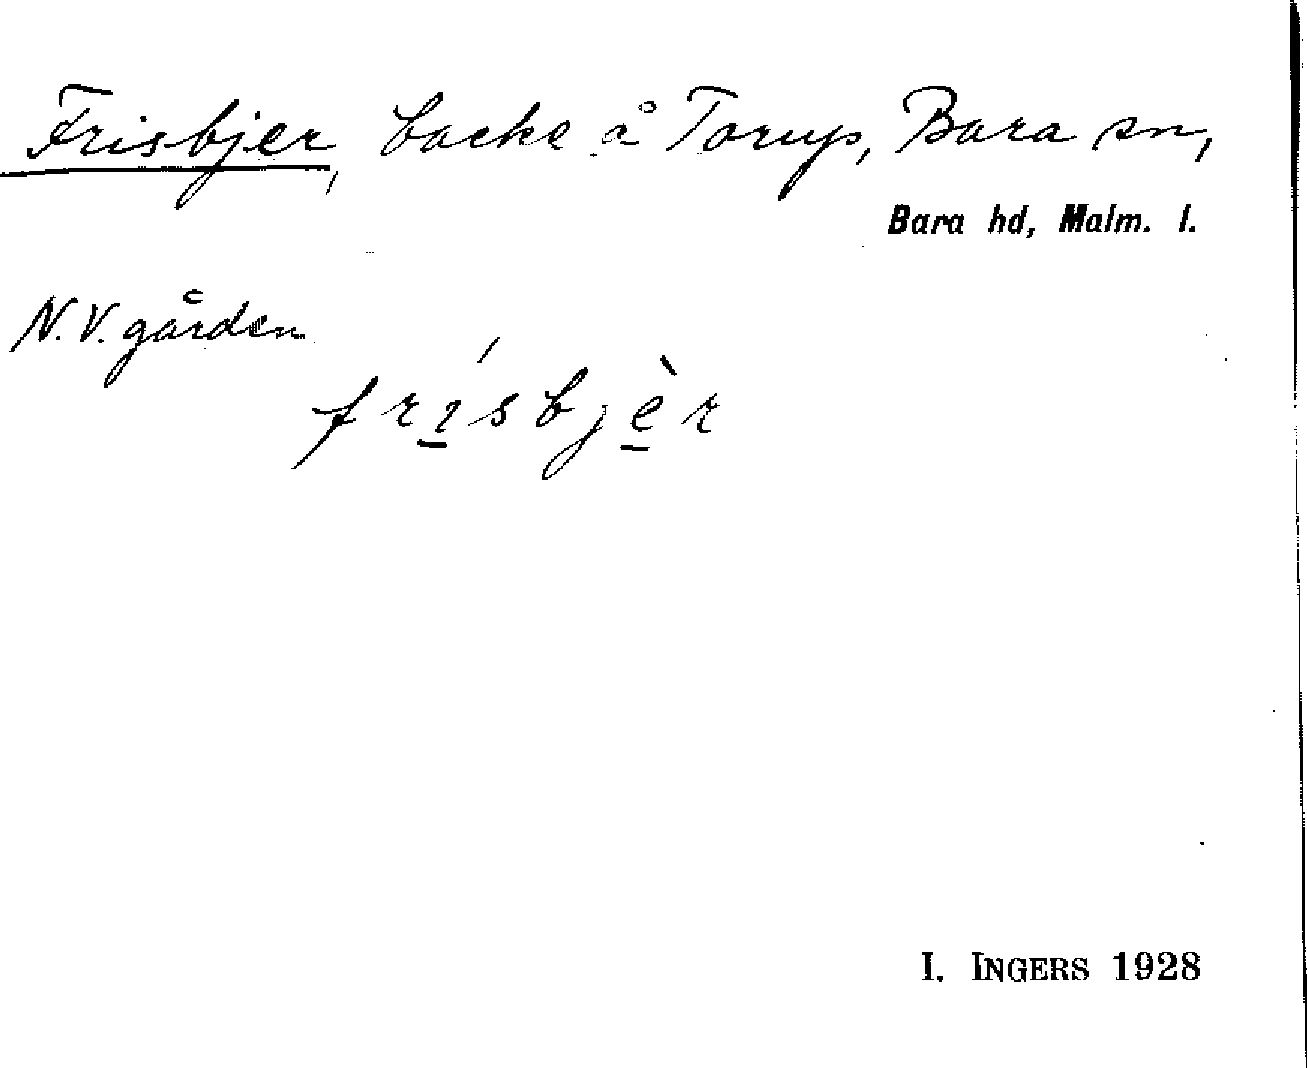 Frisbjer, backe å Torup, Bara sn,
Bara hd, Malm. l.
N.V. gården
frísbjèr
I. INGERS 1928